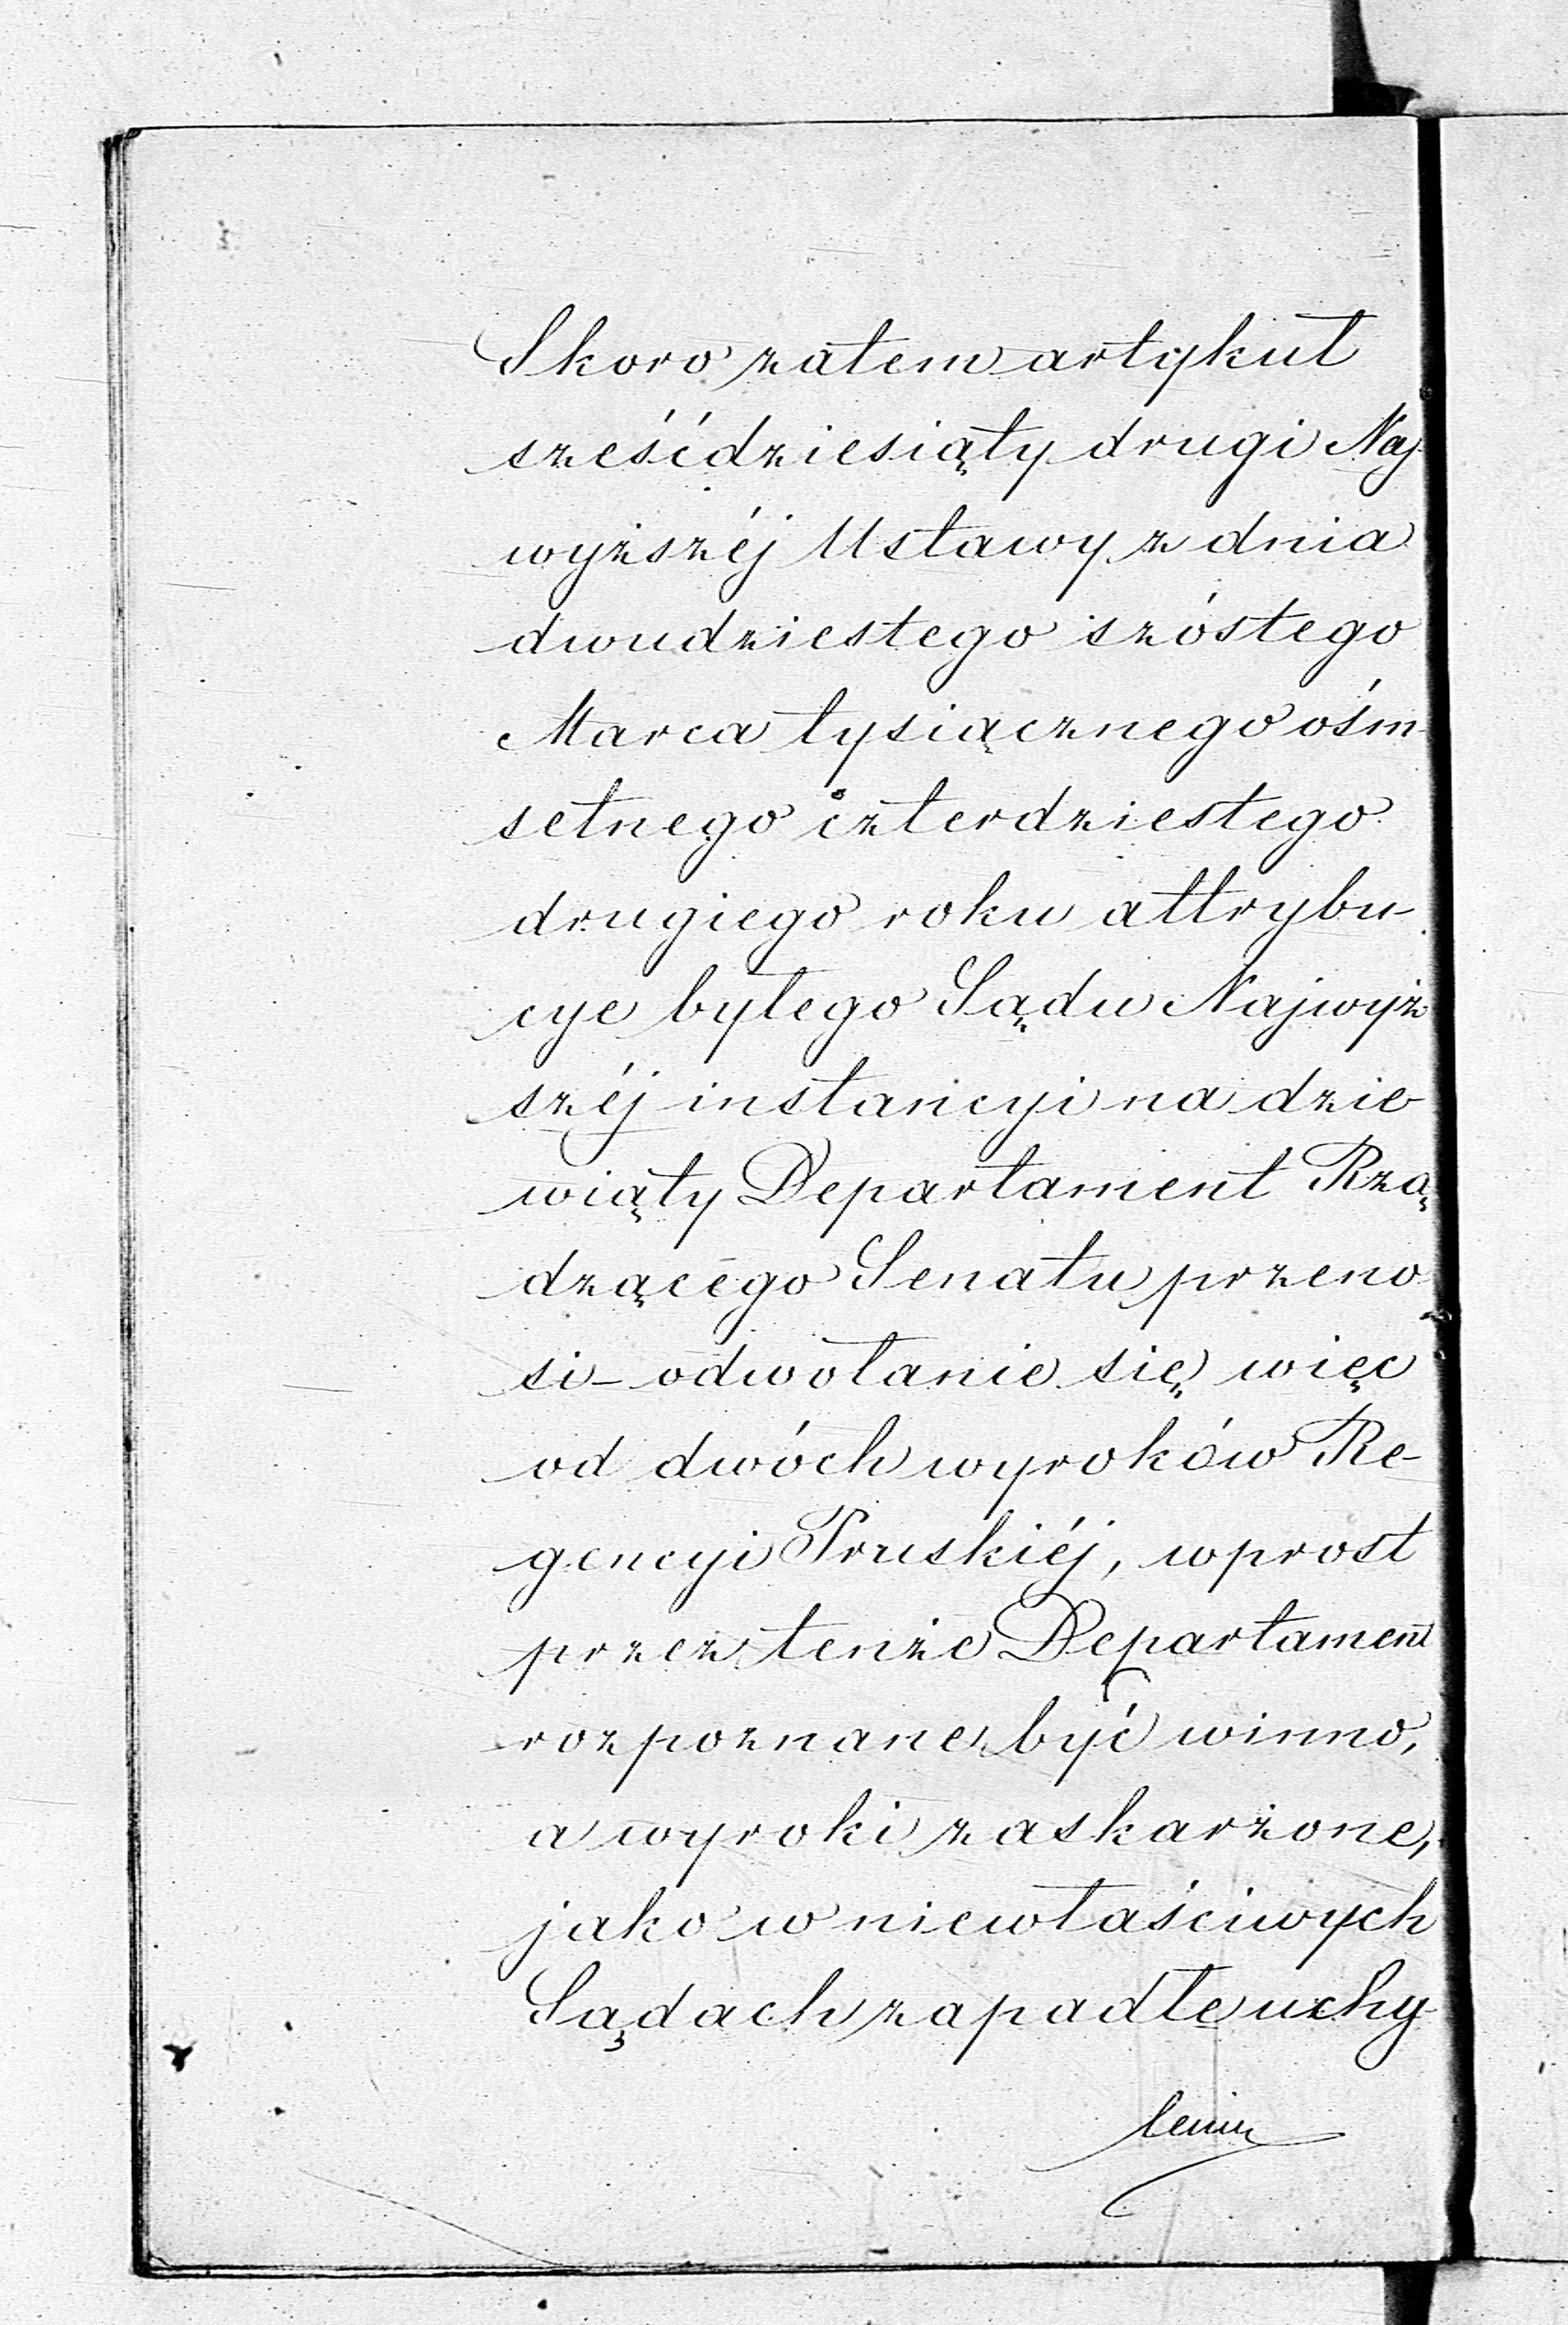 Skoro zatem artykuł
sześćdziesiąty drugi Naj-
wyższéj Ustawy z dnia
dwudziestego szóstego
Marca tysiącznego ośm-
setnego czterdziestego
drugiego roku attrybu-
cye byłego Sądu Najwyż-
széj instancyi na dzie-
wiąty Departament Rzą-
dzącego Senatu przeno-
si – odwołanie się więc
od dwóch wyroków Re-
gencyi Pruskiéj, wprost
przez tenże Departament
rozpoznane być winno,
a wyroki zaskarżone,
jako w niewłaściwych
Sądach zapadłe uchy-
leniu